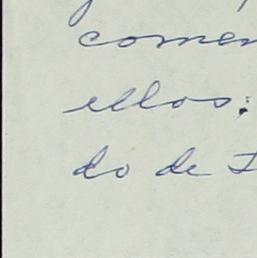 comen
ellos:
do de